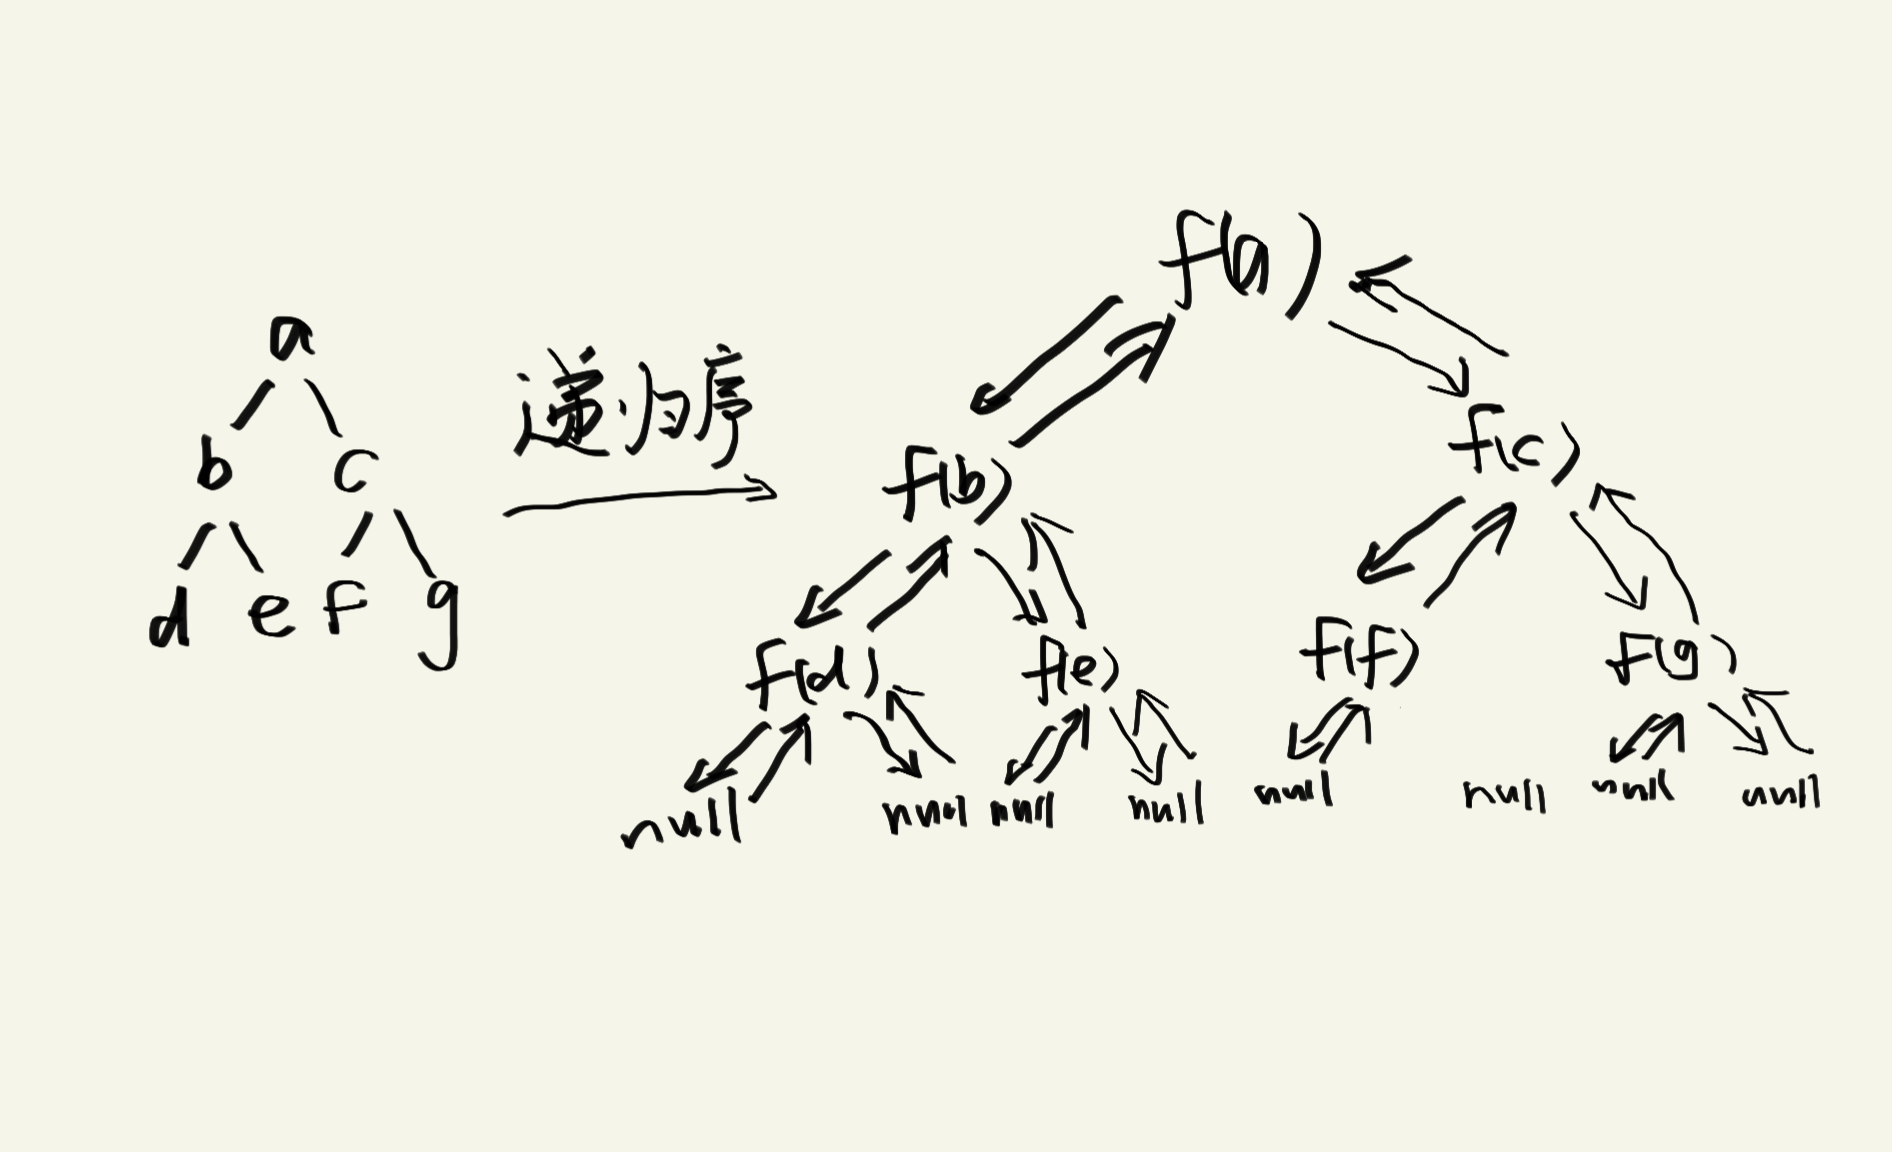 a
b c
d e f g
递归序
f(a)
f(b) f(c)
f(d) f(e) f(f) f(g)
null null null null null null null null